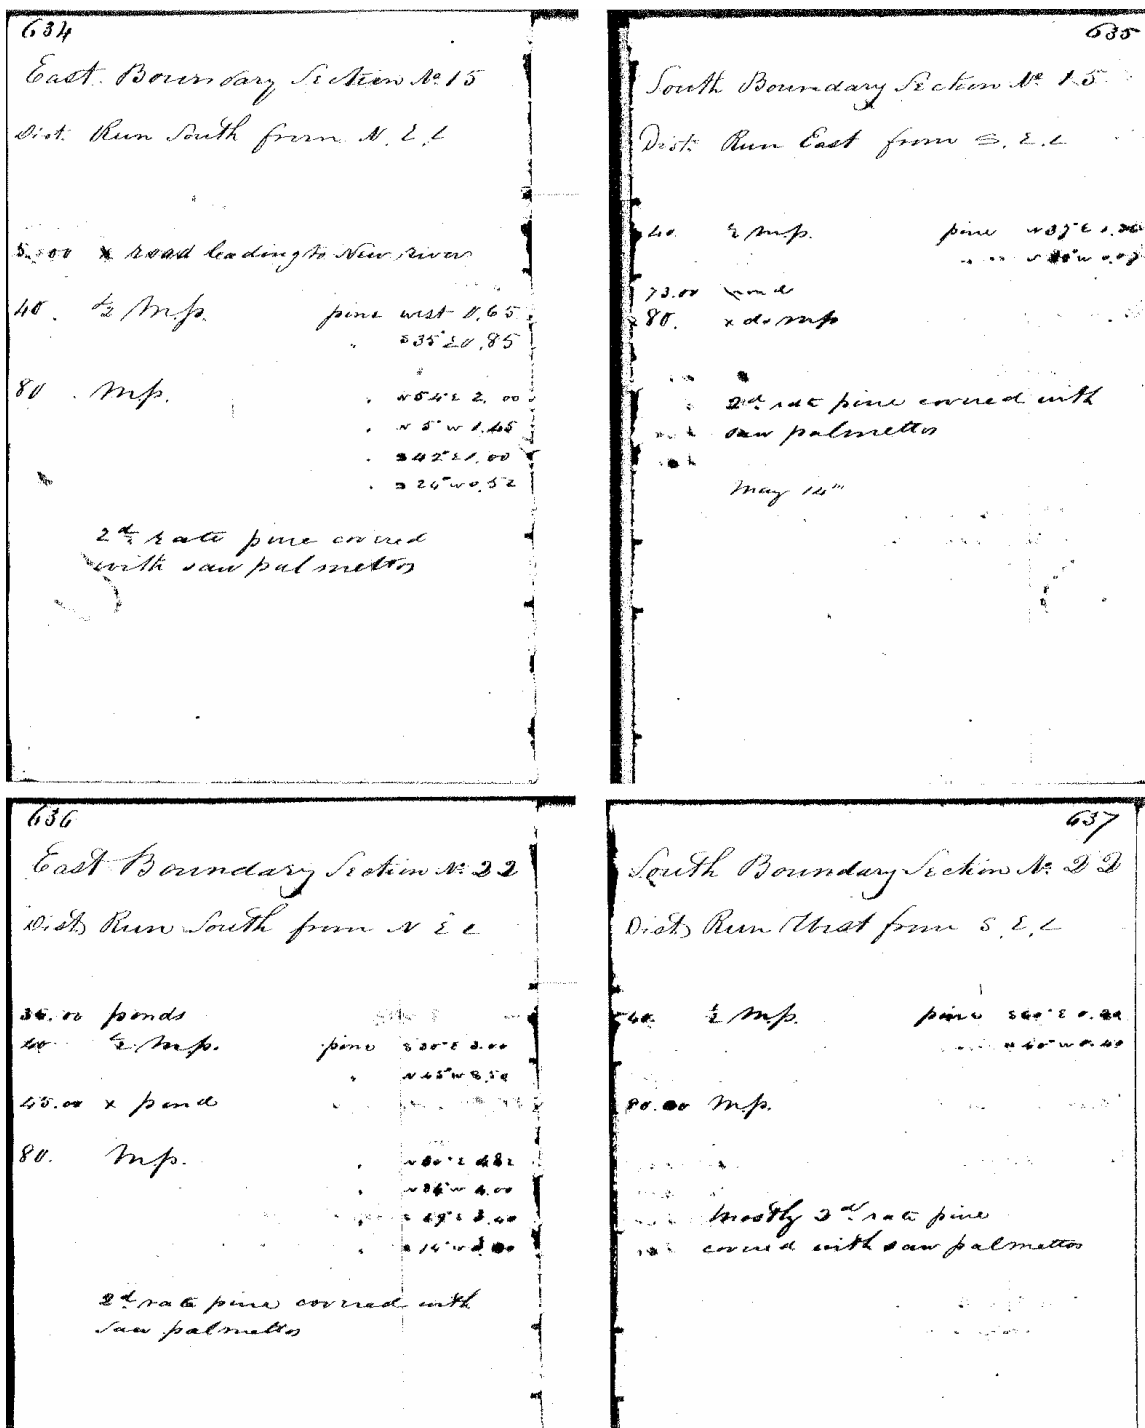 634
East Boundary Section No. 15
Dist. Run South from N. E. C
5.00 x road leading to New river
40. ½ M.p. pine west 0.65
" S 35° E 0.85
80. M.p. " N 54° E 2.00
" N 5° W 1.45
" S 42° E 1.00
" S 24° W 0.52
2d rate pine covered
with saw palmettos
635
South Boundary Section No. 15
Dist. Run East from S. E. C
40. ½ M.p. pine
73.00
80. x do M.p
2d rate pine covered with
saw palmettos
May 14th
636
East Boundary Section No. 22
Dist Run South from N E C
36.00 ponds
40 ½ M.p. pine S 30° E 3.00
" N 45° W
45.00 x pond
80. M.p. "
" 4.00
"
"
2d rate pine covered with
saw palmettos
637
South Boundary Section No. 22
Dist Run West from S. E. C
40. ½ M.p. pine
80.00 M.p.
Mostly 2d rate pine
covered with saw palmettos